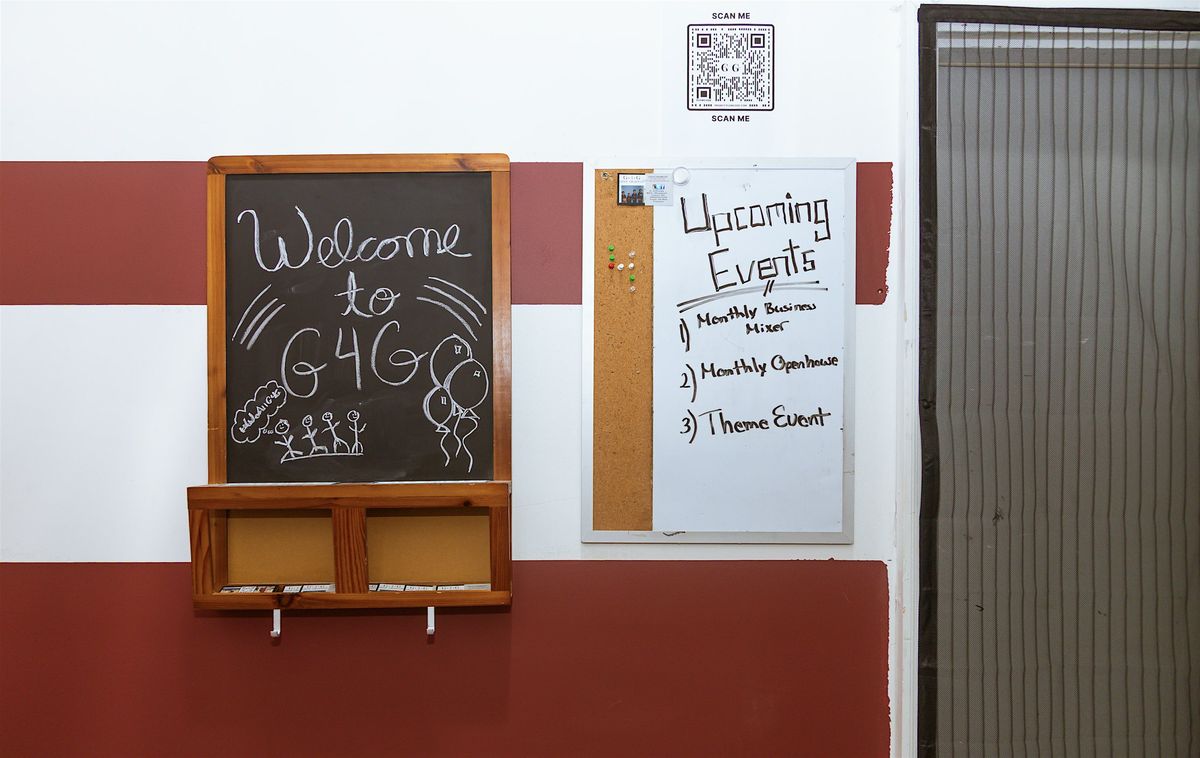 SCAN ME
G G
SCAN ME
Welcome
to
G4G
Upcoming
Events
1) Monthly Business
Mixer
2) Monthly Openhouse
3) Theme Event